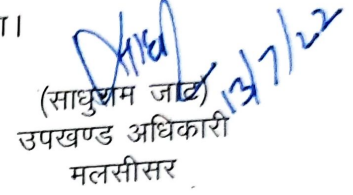 ा।
13/7/22
(साधुराम जाट)
उपखण्ड अधिकारी
मलसीसर